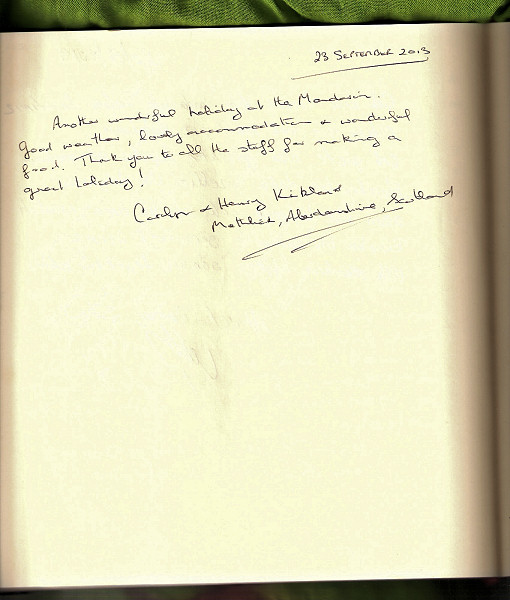 23 September 2013
Another wonderful holiday at the Mandarin.
Good weather, lovely accommodation & wonderful
food. Thank you to all the staff for making a
great holiday!
Carolyn & Henry Kirkland
Methlick, Aberdeenshire, Scotland